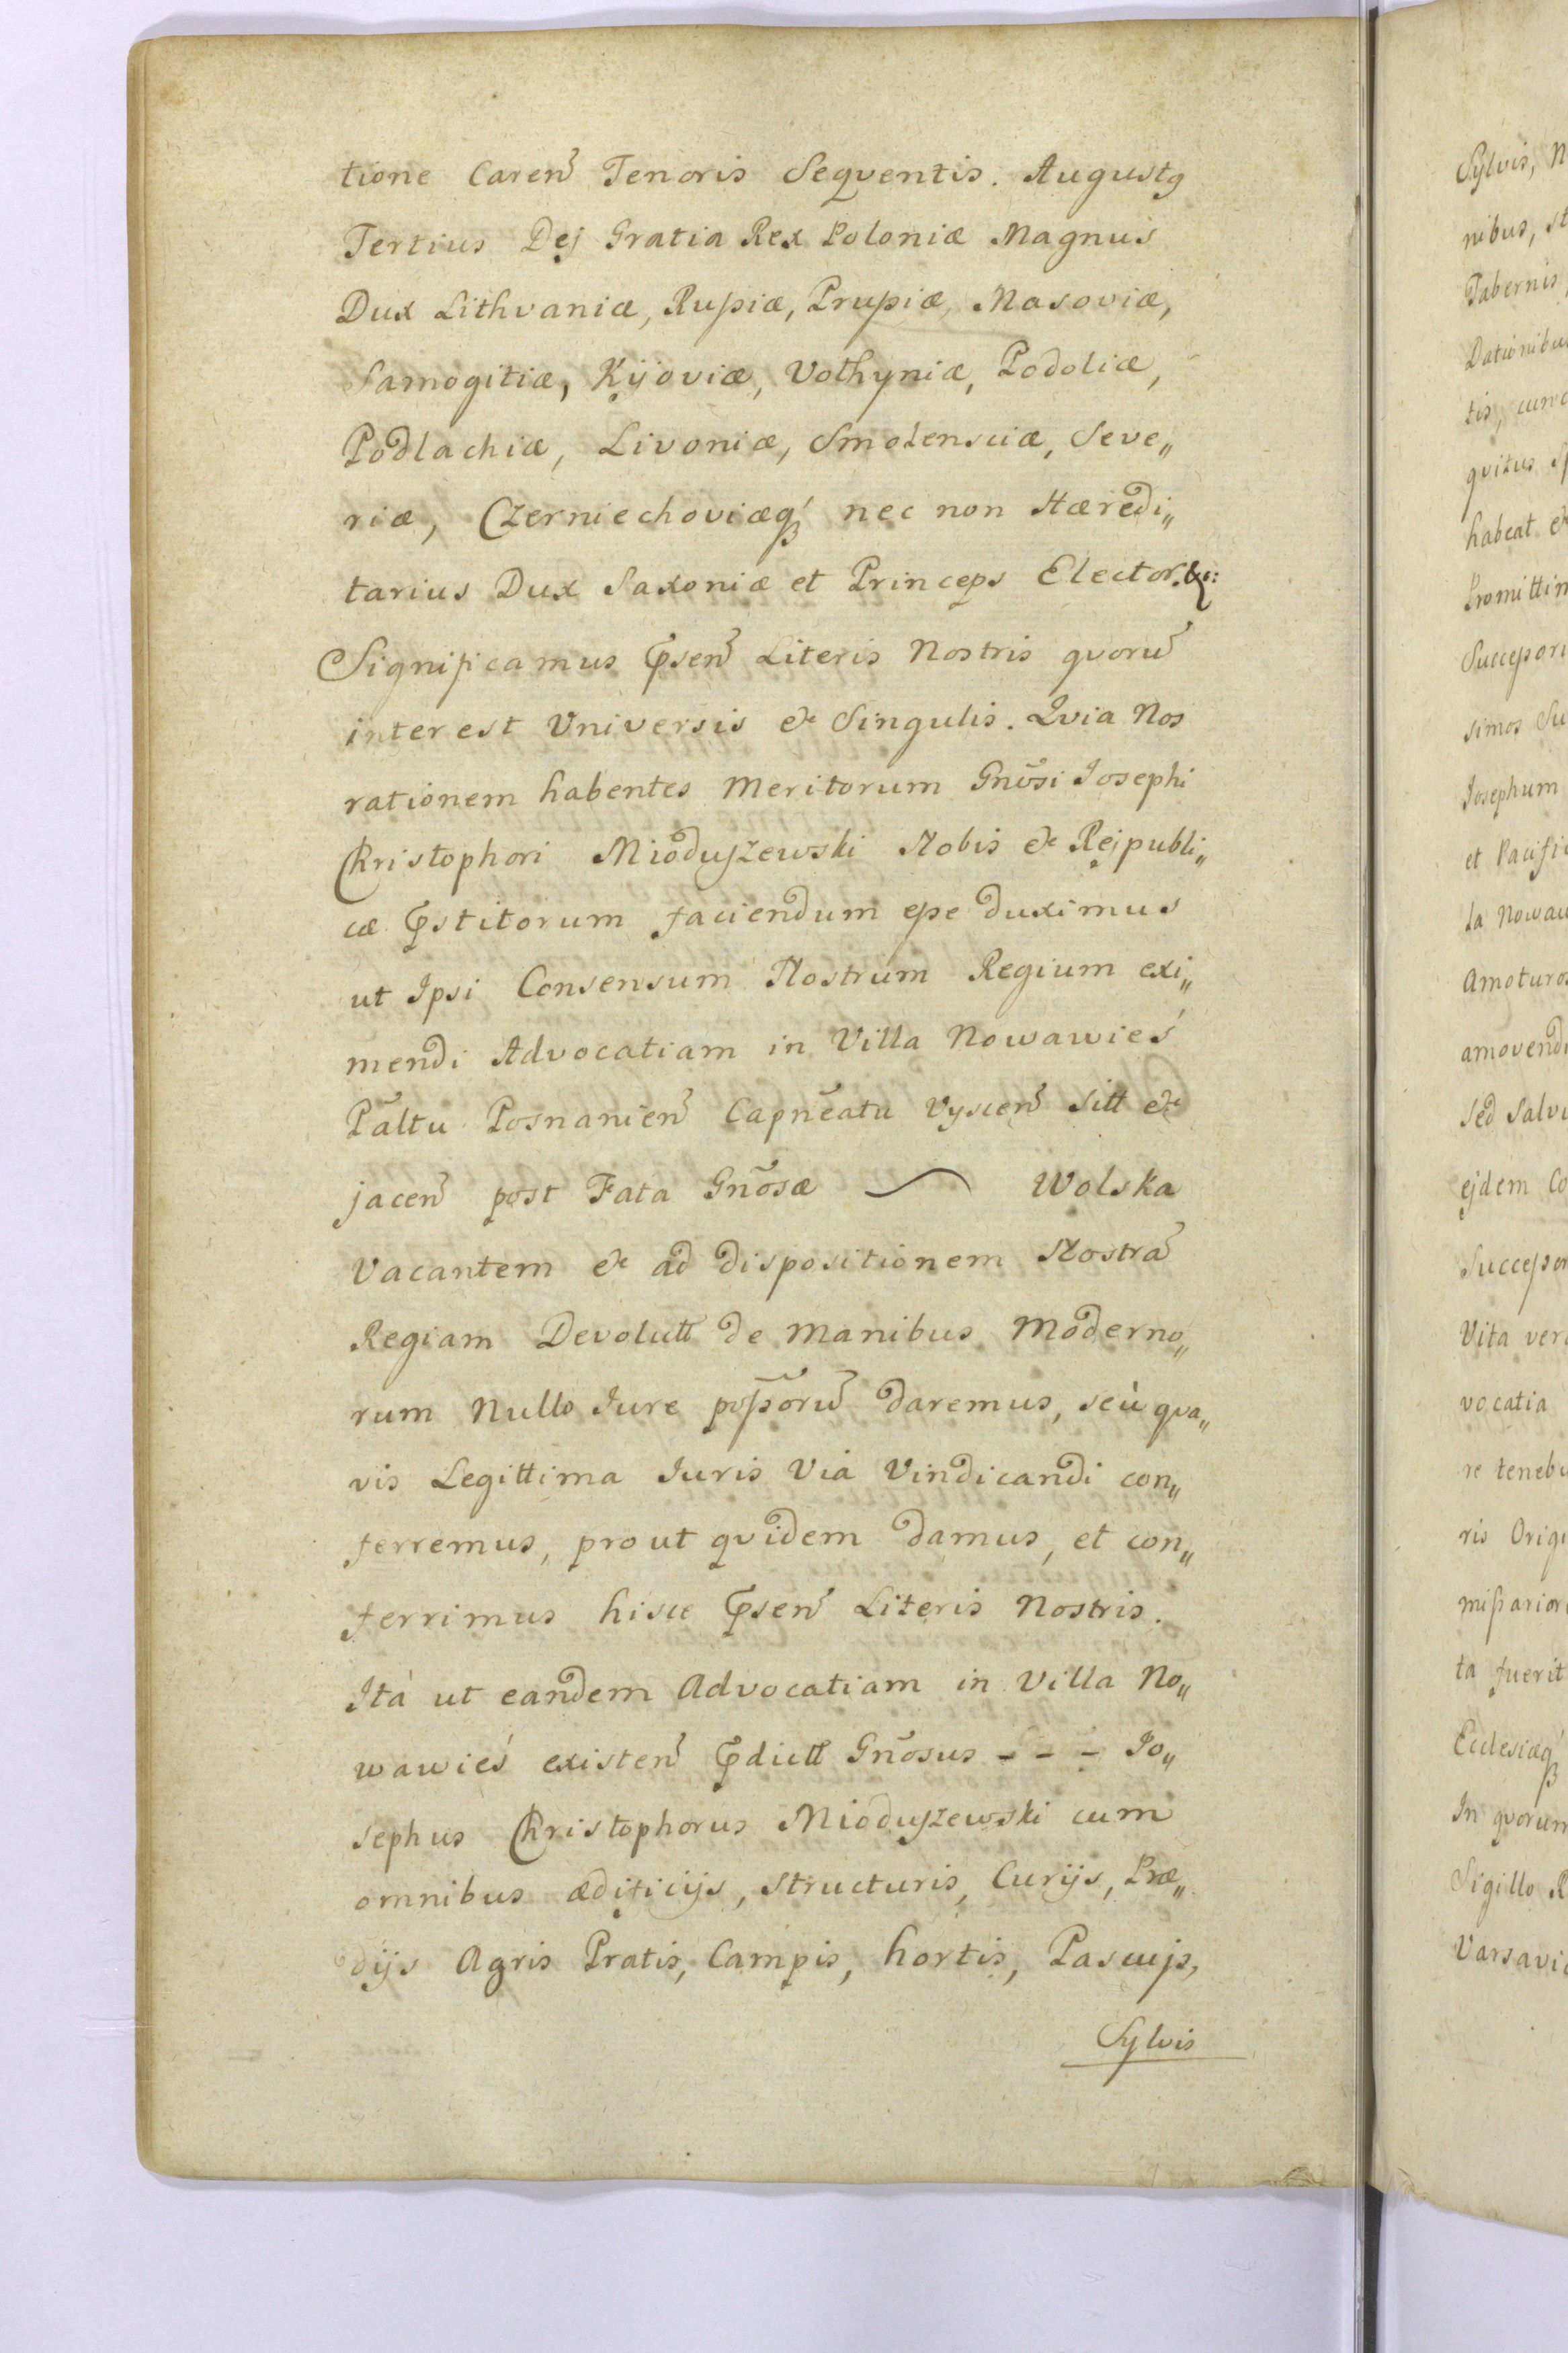 tione Careñ Tenoris Sequentis. Augustꝰ
Tertius Dej Gratia Rex Poloniæ Magnus
Dux Lithvaniæ, Rußiæ, Prußiæ, Masoviæ,
Samogitiæ, Kÿoviæ, Volhyniæ, Podoliæ,
Podlachiæ, Livoniæ, Smolensciæ, Seve„
riæ, Czerniechoviæqꝫ nec non Hæredi„
tarius Dux Saxoniæ et Princeps Elector. &:
Significamus Pꝛseñ Literis Nostris qvorū
interest Universis & Singulis. Qvia Nos
rationem habentes Meritorum Gnōsi Josephi
Christophori Mioduszewski Nobis & Rejpubli„
cæ Pꝛstitorum faciendum eße duximus
ut Ipsi Consensum Nostrum Regium exi„
mendi Advocatiam in Villa Nowawieś
Pāltu Posnanieñ Capnēatu Uysceñ Sitt &
jaceñ post Fata Gnōsæ ~ Wolska
Vacantem & ad dispositionem Nostrā
Regiam Devolutt de Manibus Moderno„
rum Nullo Jure poßorū daremus, seù qva„
vis Legittima Juris Via Vindicandi con„
ferremus, prout qvidem damus, et con„
ferrimus hisce Pꝛseñ Literis Nostris.
Ità ut eandem Advocatiam in Villa No„
wawieś existeñ Pꝛdictt Gnōsus - - - Jo„
sephus Christophorus Mioduszewski cum
omnibus ædificijs, Structuris, Curijs, Præ„
dijs Agris Pratis, Campis, hortis, Pascujs,
Sylvis
Sylvis, N
nibus, st
Tabernis,
Dationibus
tis, cunc
qvitus sp
habeat &
Promittim
Succeßori
simos Su
Josephum
et Pacifi
la Nowaw
Amoturos
amovendi
Sed Salvi
ejdem Co
Succeßor
Vita vero
vocatia
re tenebu
ris Origi
mißarior
ta fuerit
Ecclesiæqꝫ
In qvorum
Sigillo R
Varsaviæ